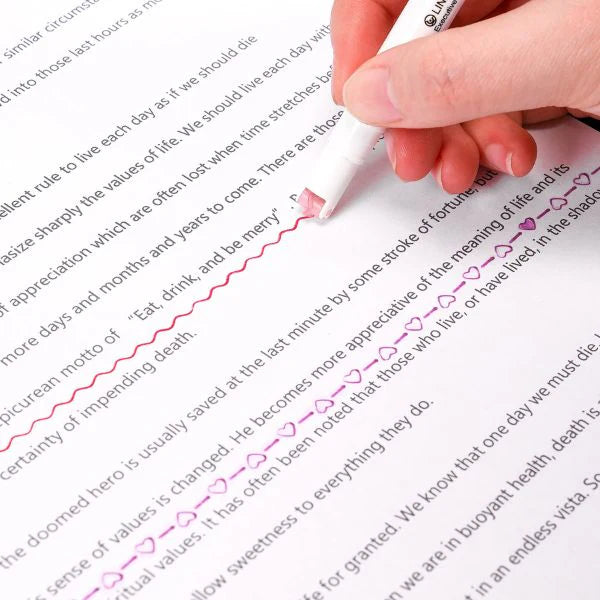 similar circumst
d into those last hours as mo
ellent rule to live each day as if we should die
hasize sharply the values of life. We should live each day with
of appreciation which are often lost when time stretches be
more days and months and years to come. There are those
picurean motto of “Eat, drink, and be merry”
certainty of impending death.
the doomed hero is usually saved at the last minute by some stroke of fortune, but
s sense of values is changed. He becomes more appreciative of the meaning of life and its
ritual values. It has often been noted that those who live, or have lived, in the shado
llow sweetness to everything they do.
ife for granted. We know that one day we must die.
n we are in buoyant health, death is
t in an endless vista. So
LIN
Executive